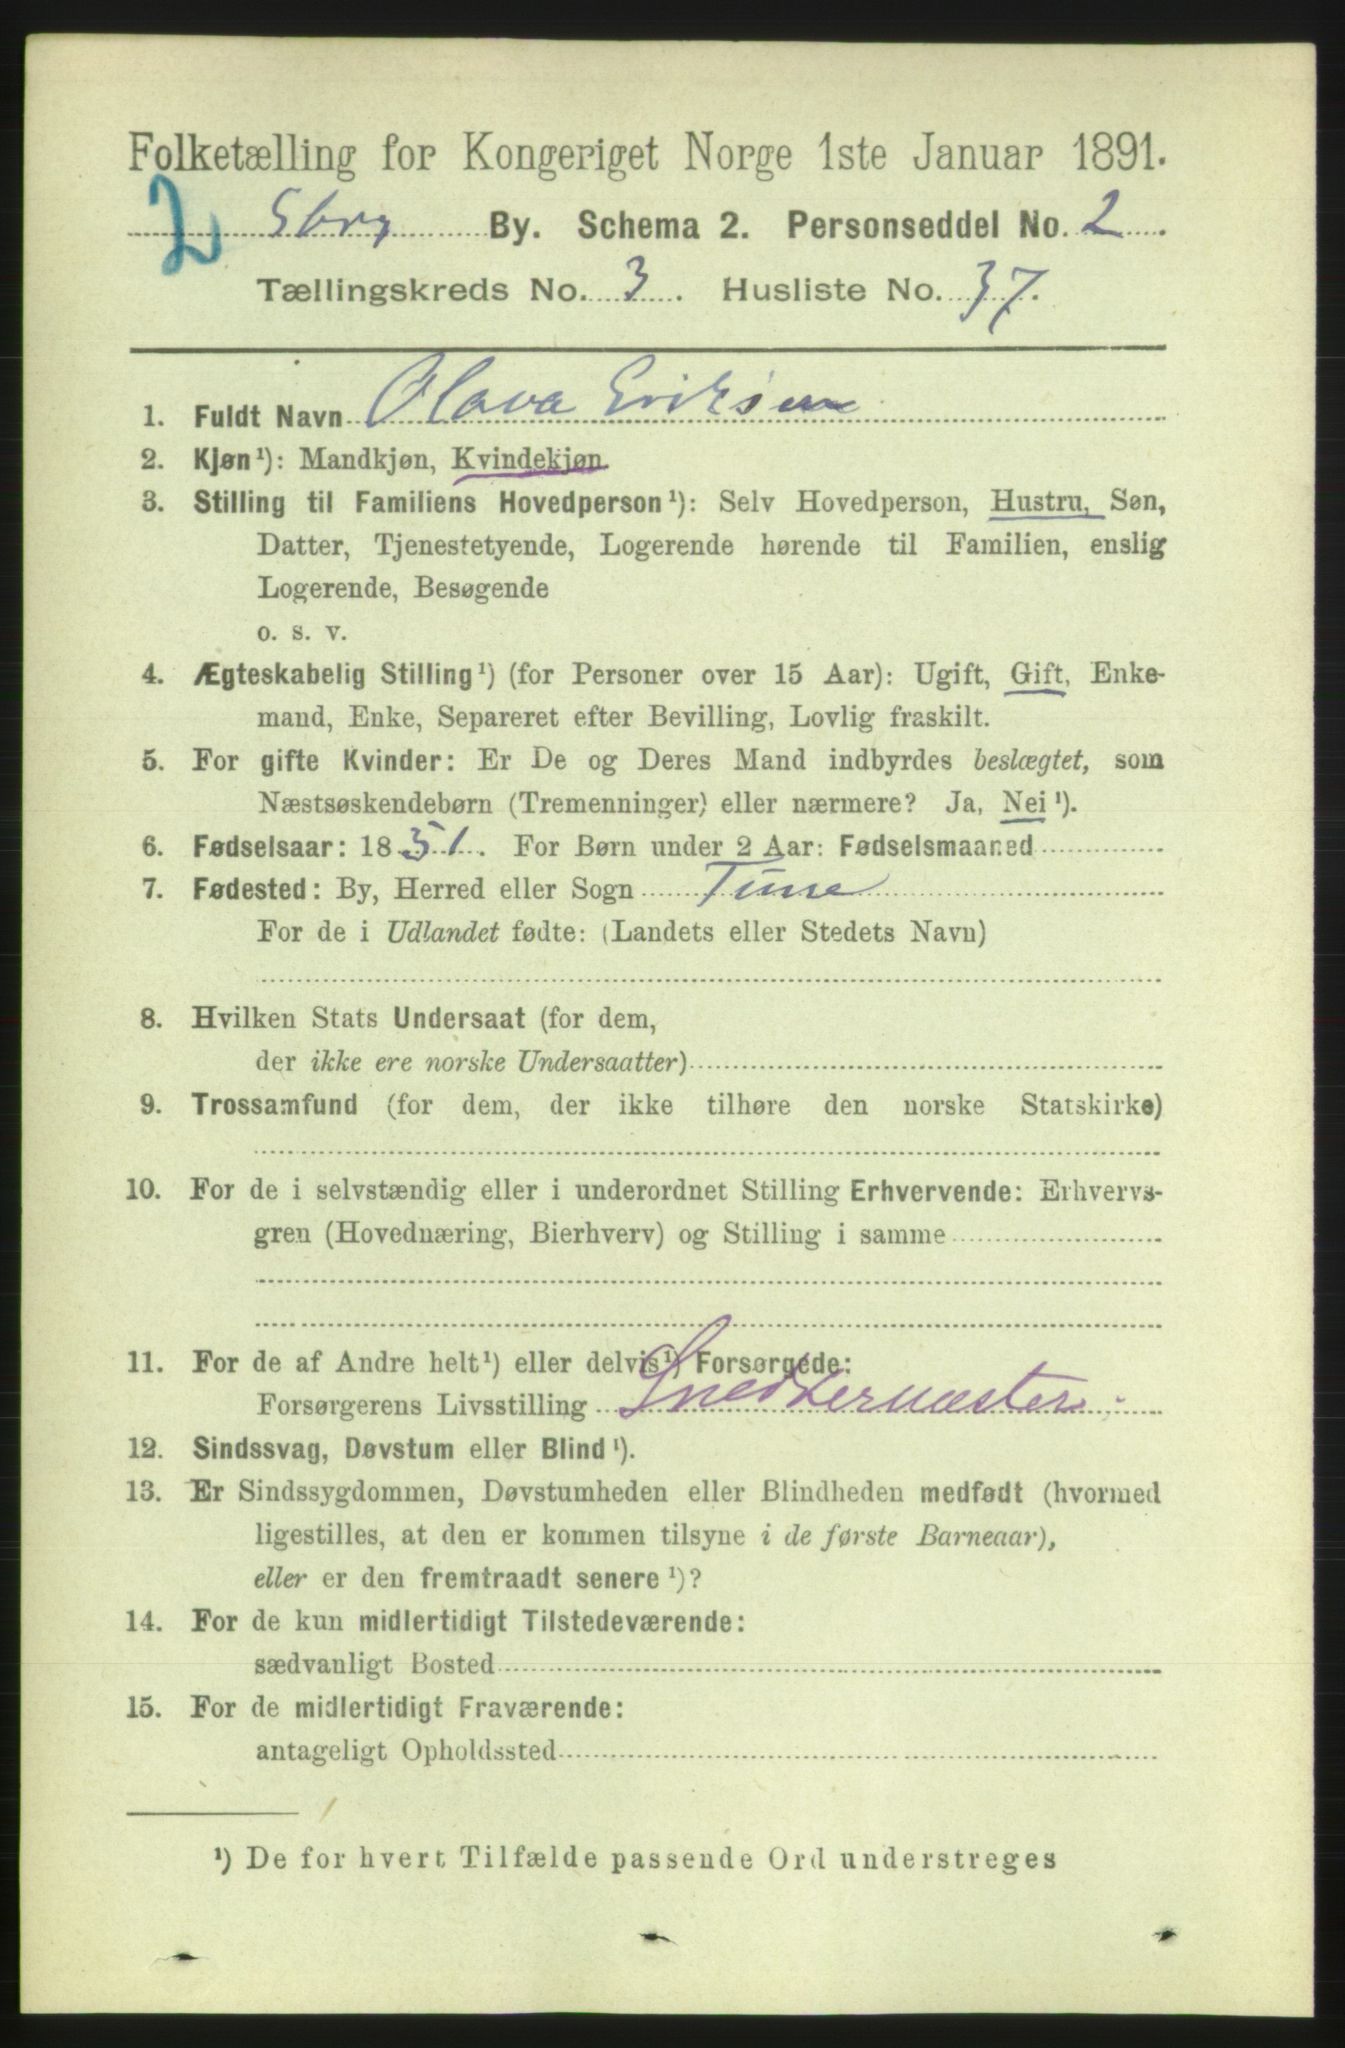 Folketælling for Kongeriget Norge 1ste Januar 1891.
2 Sbrg By. Schema 2. Personseddel No. 2.
Tællingskreds No. 3. Husliste No. 37.
1. Fuldt Navn Olava Eriksen
2. Kjøn¹): Mandkjøn, Kvindekjøn.
3. Stilling til Familiens Hovedperson¹): Selv Hovedperson, Hustru, Søn,
Datter, Tjenestetyende, Logerende hørende til Familien, enslig
Logerende, Besøgende
o. s. v.
4. Ægteskabelig Stilling¹) (for Personer over 15 Aar): Ugift, Gift, Enke-
mand, Enke, Separeret efter Bevilling, Lovlig fraskilt.
5. For gifte Kvinder: Er De og Deres Mand indbyrdes beslægtet, som
Næstsøskendebørn (Tremenninger) eller nærmere? Ja, Nei¹).
6. Fødselsaar: 1851. For Børn under 2 Aar: Fødselsmaaned
7. Fødested: By, Herred eller Sogn Tune
For de i Udlandet fødte: (Landets eller Stedets Navn)
8. Hvilken Stats Undersaat (for dem,
der ikke ere norske Undersaatter)
9. Trossamfund (for dem, der ikke tilhøre den norske Statskirke)
10. For de i selvstændig eller i underordnet Stilling Erhvervende: Erhvervs-
gren (Hovednæring, Bierhverv) og Stilling i samme
11. For de af Andre helt¹) eller delvis¹) Forsørgede:
Forsørgerens Livsstilling Snedkermester
12. Sindssvag, Døvstum eller Blind¹).
13. Er Sindssygdommen, Døvstumheden eller Blindheden medfødt (hvormed
ligestilles, at den er kommen tilsyne i de første Barneaar),
eller er den fremtraadt senere¹)?
14. For de kun midlertidigt Tilstedeværende:
sædvanligt Bosted
15. For de midlertidigt Fraværende:
antageligt Opholdssted
¹) De for hvert Tilfælde passende Ord understreges